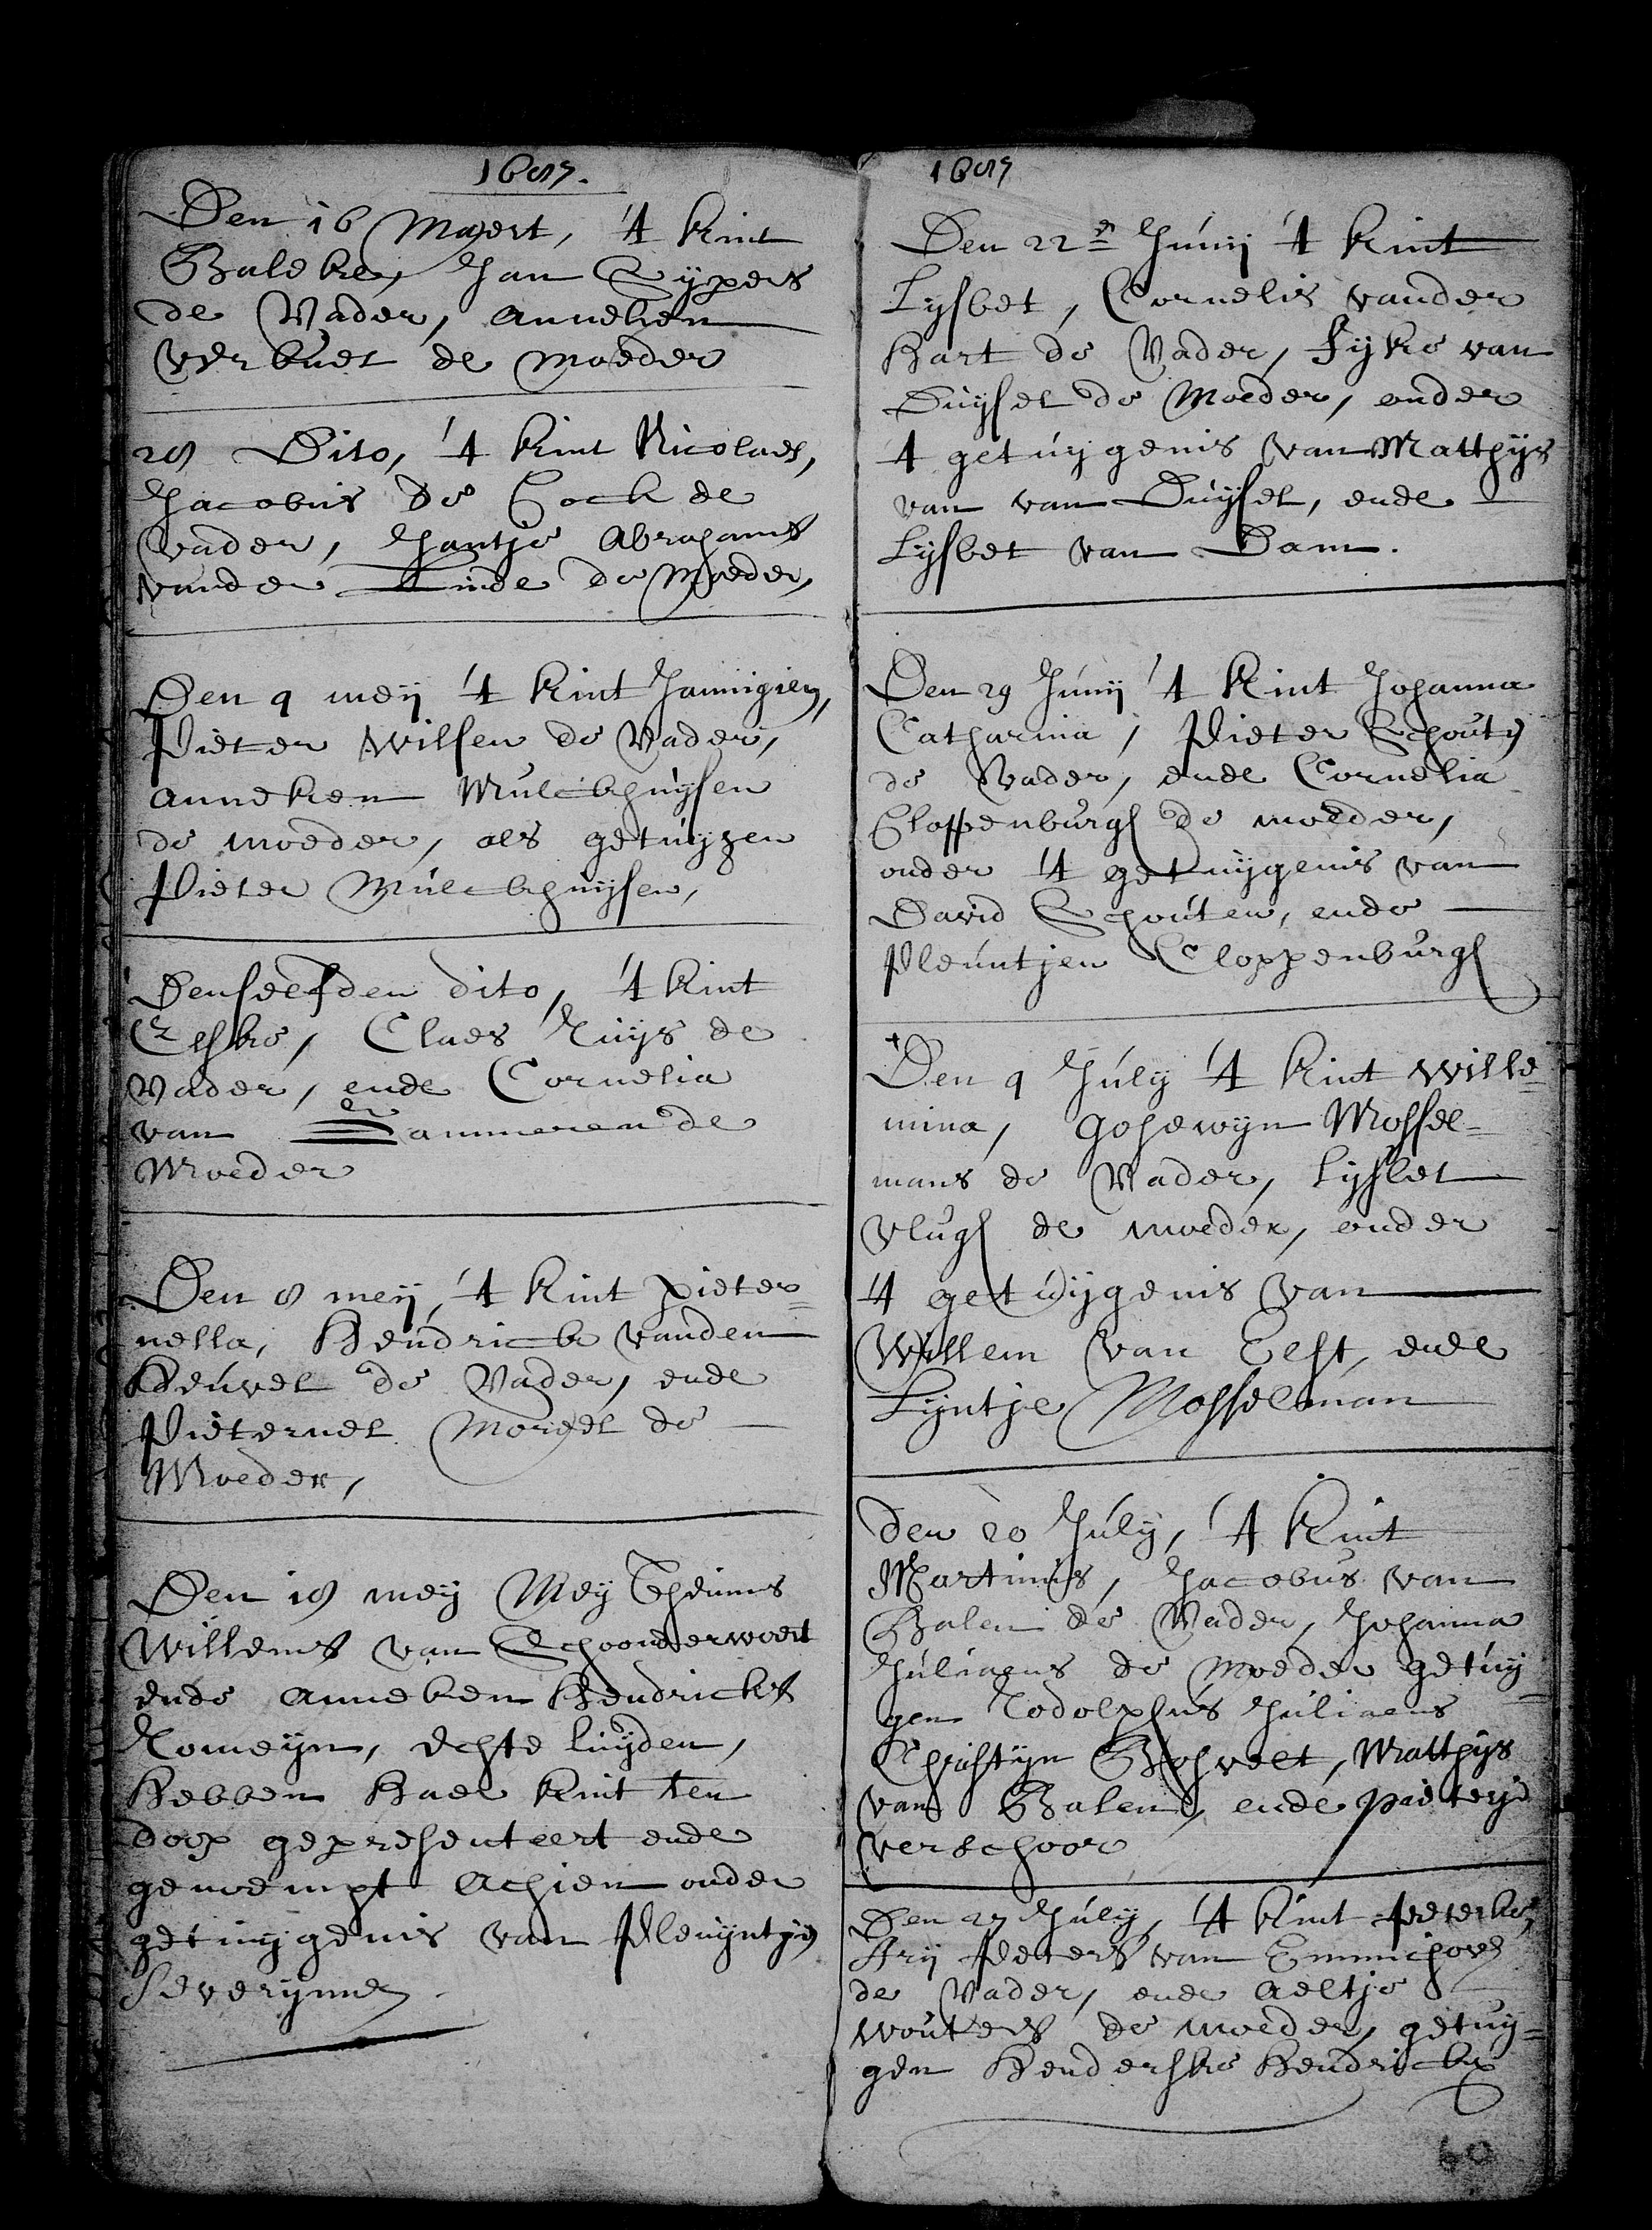 1687.
Den 16 Maert, 't kint
Baleke, Jan Cÿpers
de Vader, anneken
verbuet de moeder
28 Dito, 't kint Nicolaes,
Jacobus de Cock de
vader, Jantje Abrahams
vander Linde de Moeder,
Den 4 meij 't kint Jannigien,
Pieter Wilsen de Vader,
anneken Mulckhuijsen
de moeder, als getuijgen
Pieter Mulckhuijsen,
Denselfden dito, 't kint
Elske, Claes Luijs de
Vader, ende Cornelia
van ammeren de
Moeder
Den 8 meij, 't kint pieter=
nella, Hendrick vanden
Heuvel de Vader, ende
Pieternel Moreel de
Moeder,
Den 18 meij Meij Theunis
Willems van Schoonderwoert
ende anneken Hendricks
Romeijn, echte luijden,
hebben haer kint ten
doop gepresenteert ende
genoempt Achien onder
getuijgenis van Pleuijntje
Severijnne
1687
Den 22 Junij 't kint
Lijsbet, Cornelis vander
Hart de Vader, Fijke van
Duijsel de Moeder, onder
't getuijgenis van Matthijs
van van Duijsel, ende
Lijsbet van Dam.
Den 29 Junij 't kint Johanna
Catharina, Pieter Schoute
de Vader, ende Cornelia
Cloppenburgh de moeder,
onder 't getuijgenis van
David Schouten, ende
Pleuntjen Cloppenburgh
Den 4 Julij 't kint Wille=
mina, Gosewijn Mossel=
mans de Vader, Lijsbet
Vlugh de moeder, onder
't getuijgenis van
Willem van Elst, ende
Lijntje Mosselman
den 20 Julij, 't kint
Martinus, Jacobus van
Balen de Vader, Johanna
Juliaens de Moeder getuij=
gen Rodolphus Juliaens
Christijn Boshvelt, Matthijs
van Balen, ende
verschoor
Den 27 Julij, 't kint Peterke,
Arij Peters van Emmichove
de Vader, ende Aeltje
Wouters de moeder, getuij=
gen Henderske Hendrickx
60